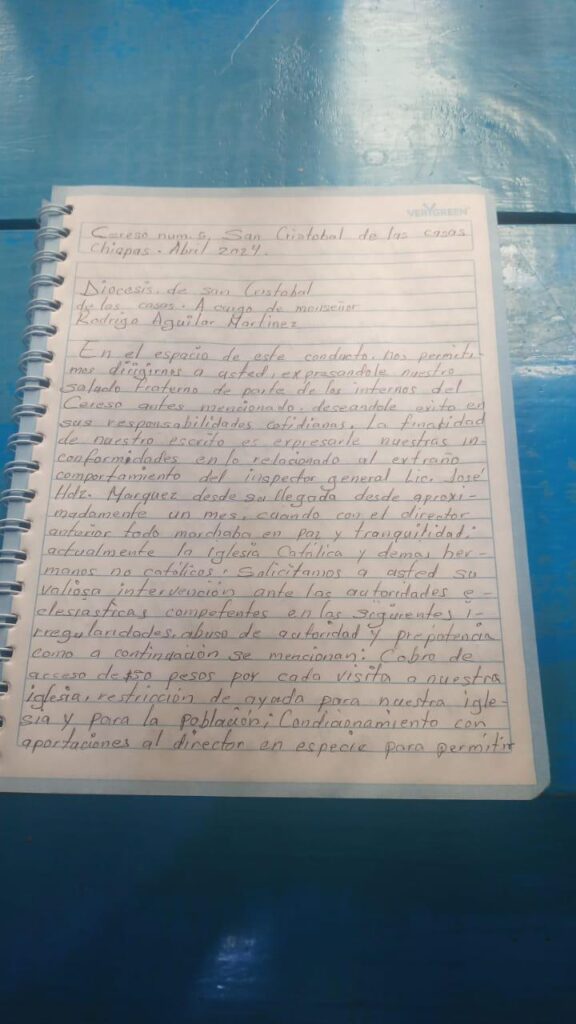 VERYGREEN
Cereso num. 5, San Cristobal de las casas
Chiapas. Abril 2024.
Diocesis. de san Cristobal
de las casas. A cargo de monseñor
Rodrigo Aguilar Martinez
En el espacio de este conducto. Nos permiti-
mos dirigirnos a usted, expresandole nuestro
saludo fraterno de parte de los internos del
Cereso antes mencionado, deseandole exito en
sus responsabilidades cotidianas. La finalidad
de nuestro escrito es expresarle nuestras in-
conformidades en lo relacionado al extraño
comportamiento del inspector general Lic. José
Hdz. Marquez desde su llegada desde aproxi-
madamente un mes, cuando con el director
anterior todo marchaba en paz y tranquilidad;
actualmente la iglesia Católica y demas her-
manos no católicos. Solicitamos a usted su
valiosa intervención ante las autoridades e-
clesiasticas competentes en las siguientes i-
rregularidades, abuso de autoridad y prepotencia
como a continuación se mencionan; Cobro de
acceso de $50 pesos por cada visita a nuestra
iglesia, restricción de ayuda para nuestra igle-
sia y para la población; Condicionamiento con
aportaciones al director en especie para permitir